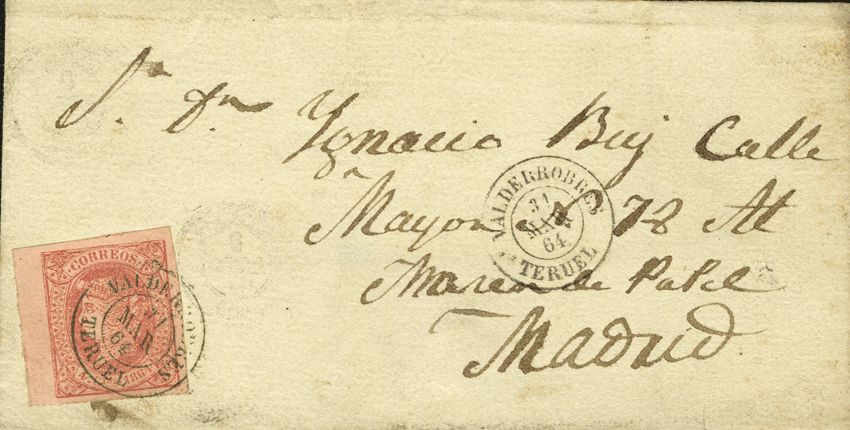 Sr. Dn Ygnacio Buj Calle
Mayor 78 At
Madrid
VALDERROBRES
31
MAR
64
TERUEL
CORREOS
VALDERROBRES
31
MAR
64
TERUEL